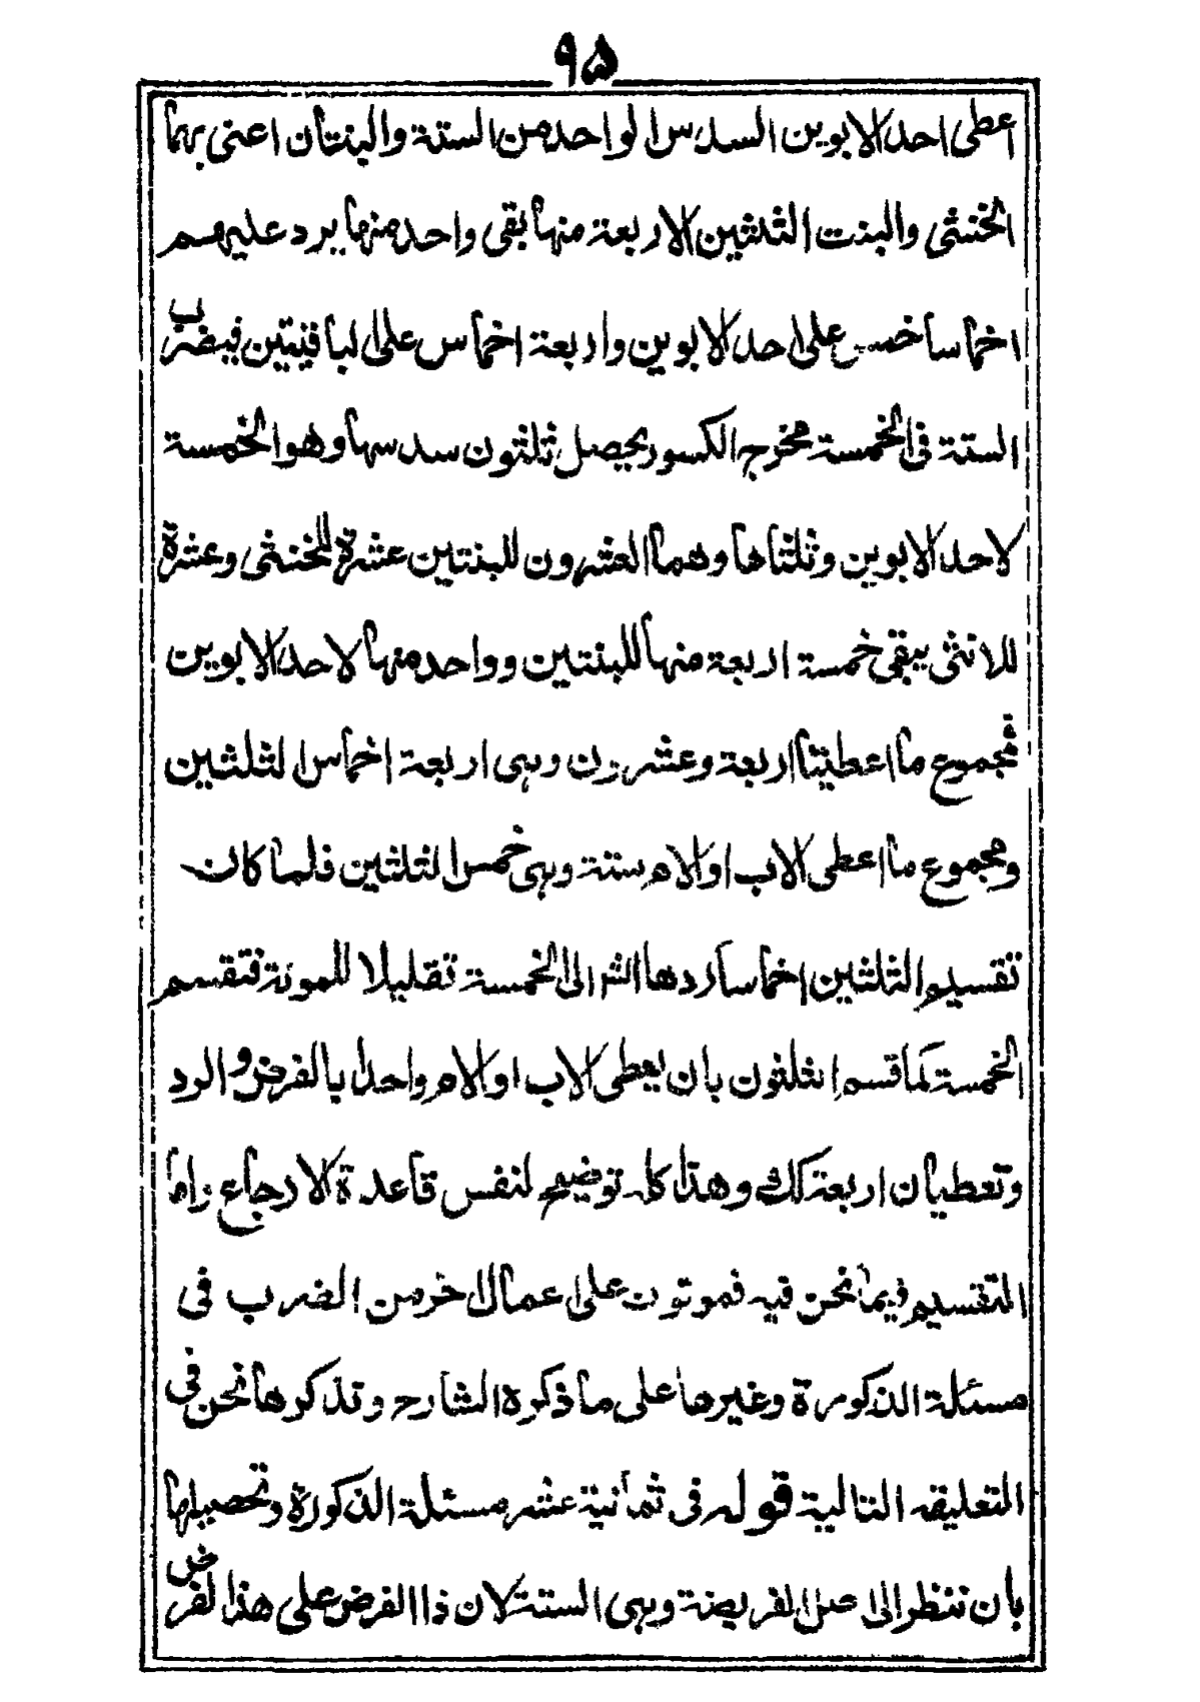 ٩٥
اعطى احد الابوين السدس الواحد من الستة والبنتان اعنى بهما
الخنثى والبنت الثلثين الاربعة منها بقى واحد منها يرد عليهم
اخماسا خمس على احد الابوين واربعة اخماس على الباقيتين فيضرب
الستة فى الخمسة مخرج الكسور يحصل ثلثون سدسها وهو الخمسة
لاحد الابوين وثلثاها وهما العشرون للبنتين عشرة للخنثى وعشرة
للانثى يبقى خمسة اربعة منها للبنتين وواحد منها لاحد الابوين
فمجموع ما اعطيتا اربعة وعشرون وهى اربعة اخماس الثلثين
ومجموع ما اعطى الاب او الام ستة وهى خمس الثلثين فلما كان
تقسيم الثلثين اخماسا ردها الش الى الخمسة تقليلا للمونة فتقسم
الخمسة كما قسم الثلثون بان يعطى الاب او الام واحدا بالفرض والرد
وتعطيان اربعة كك وهذا كله توضيح لنفس قاعدة الارجاع واما
التقسيم فيما نحن فيه فموقوف على اعمال اخر من الضرب فى
مسئلة الذكورة وغيرها على ما ذكره الشارح وتذكرها نحن فى
التعليقه التالية قوله فى ثمانية عشر مسئلة الذكورة وتحصيلها
بان ننظر الى اصل الفريضة وهى الستة لان ذا الفرض على هذا الفرض